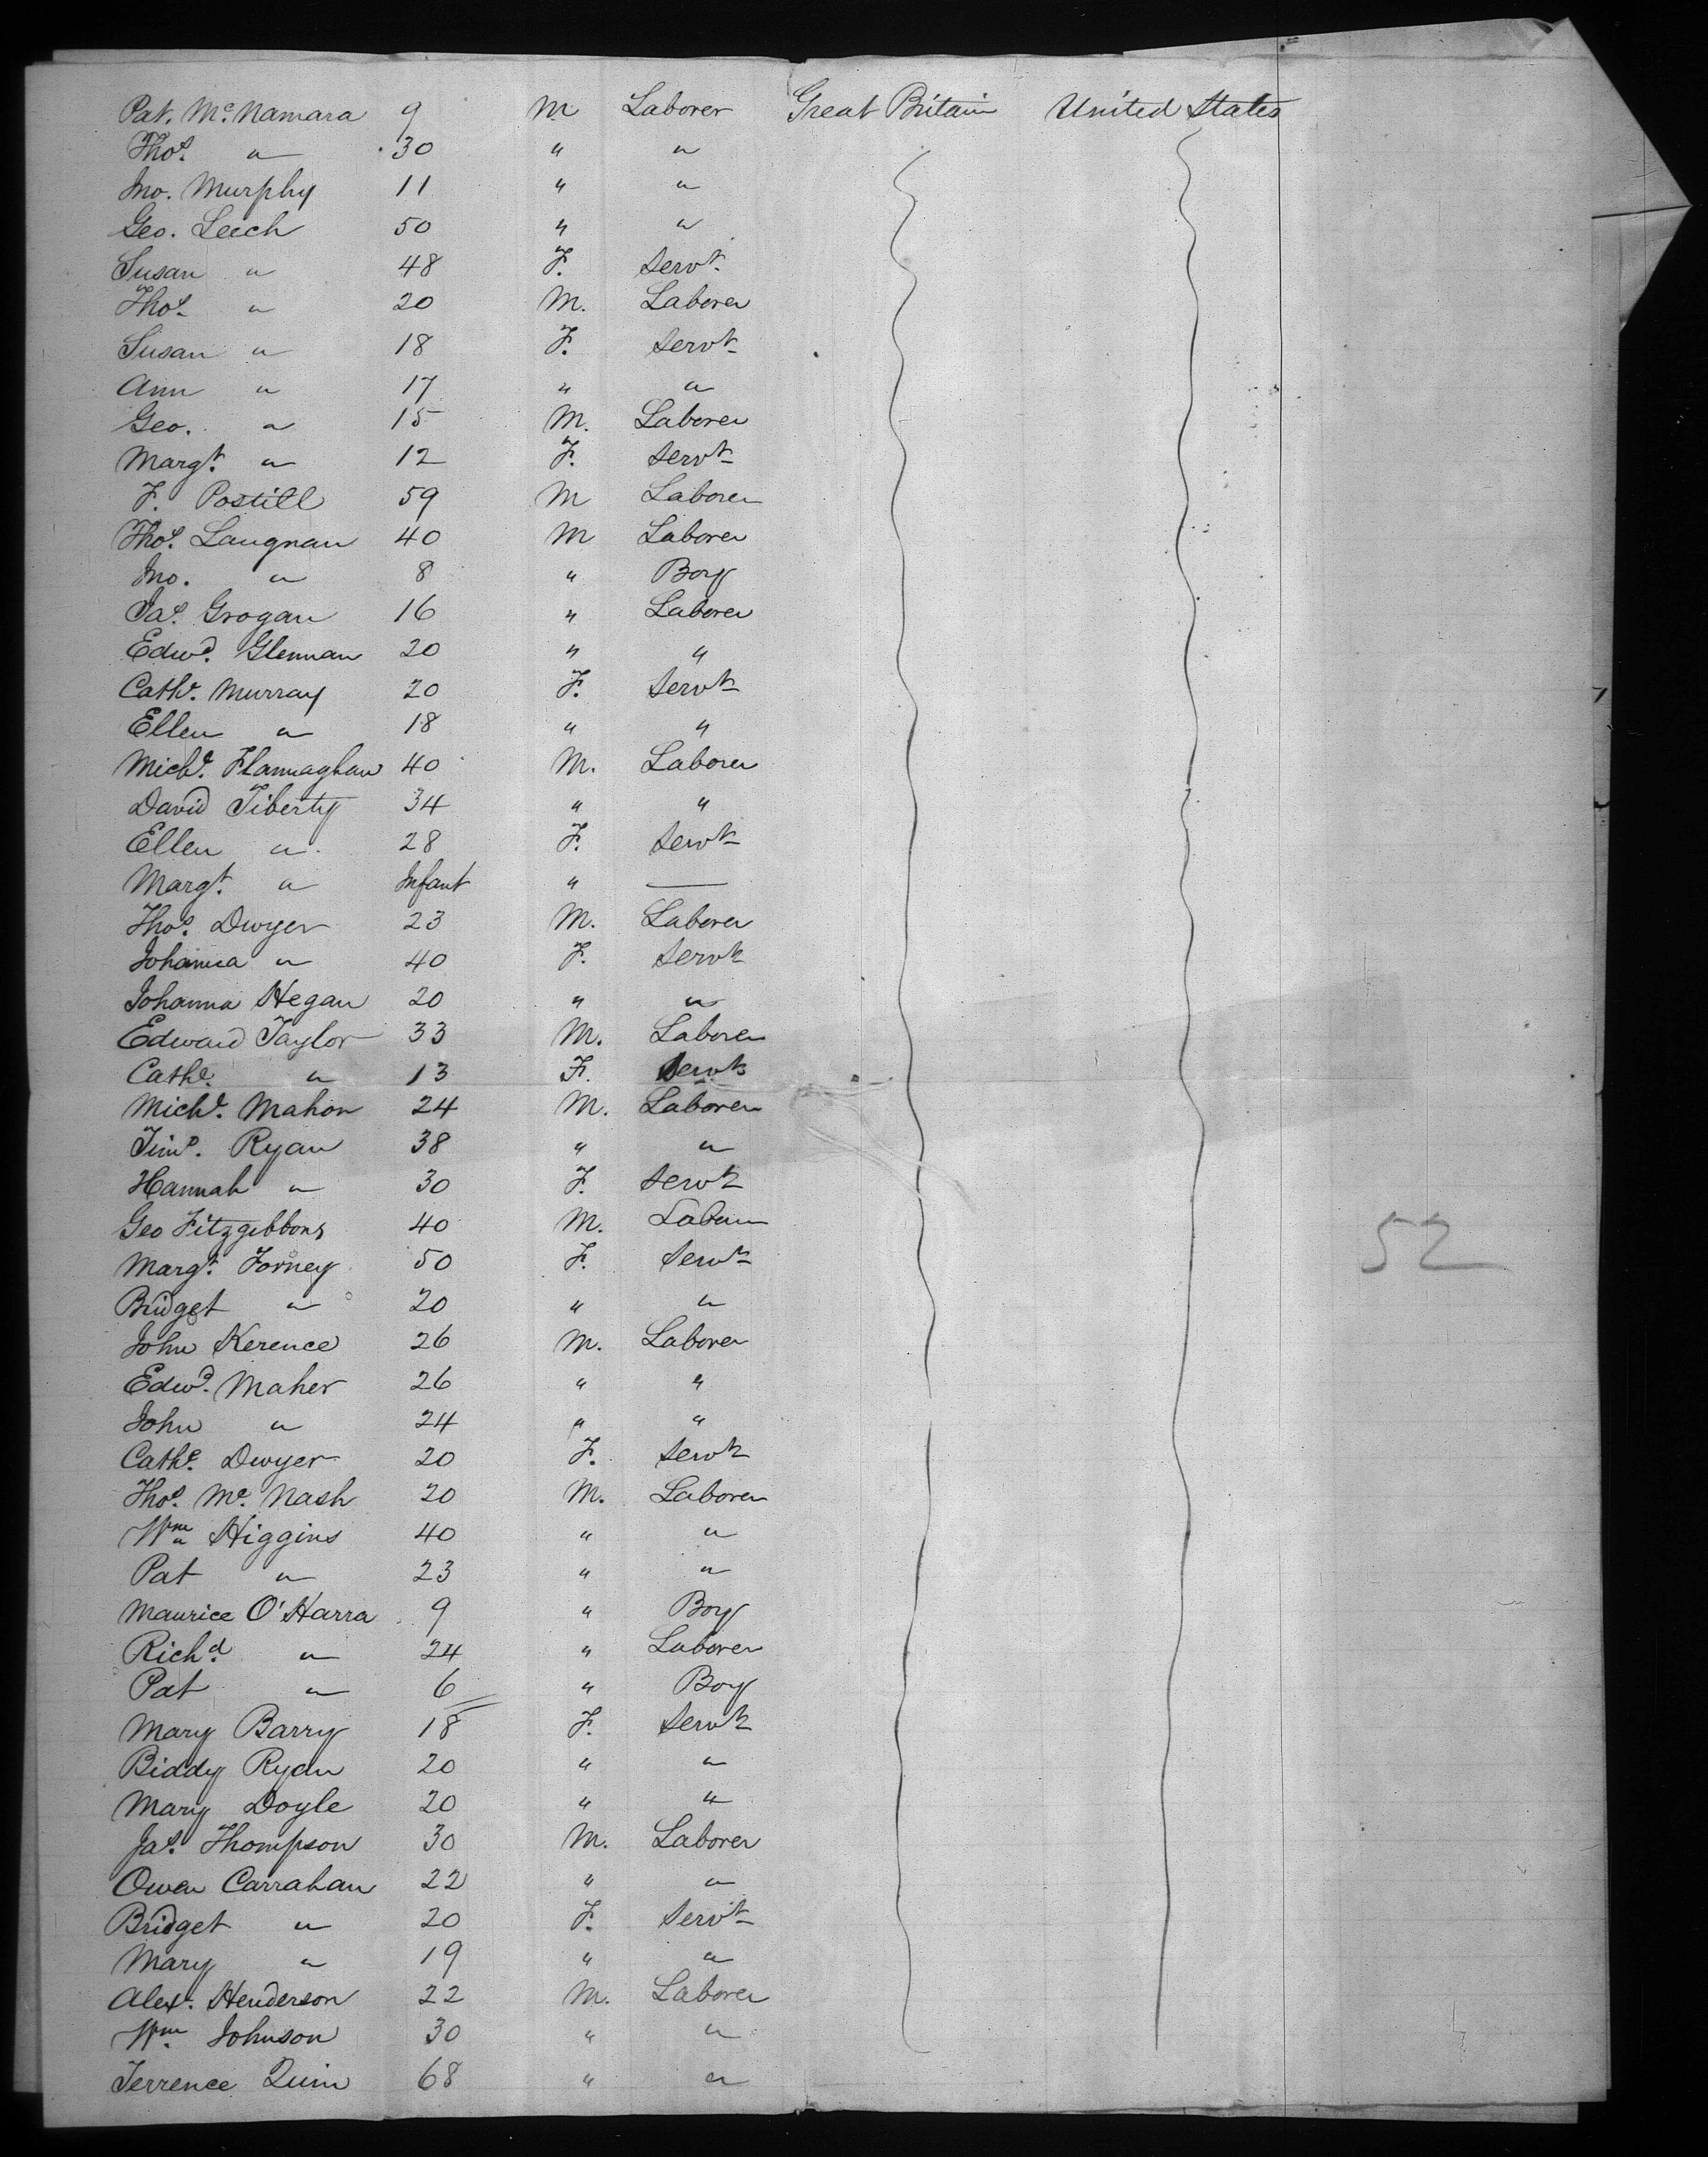 Pat. Mc. Namara 9 M Laborer Great Britain United States
Thos. " 30 " "
Jno. Murphy 11 " "
Geo. Leech 50 " "
Susan " 48 F. Servt.
Thos. " 20 M. Laborer
Susan " 18 F. Servt
Ann " 17 " "
Geo. " 15 M. Laborer
Margt. " 12 F. Servt
F. Postill 59 M Laborer
Thos. Laugnan 40 M Laborer
Jno. " 8 " Boy
Jas. Grogan 16 " Laborer
Edwd. Glennan 20 " "
Cathe. Murray 20 F. Servt
Ellen " 18 " "
Michl. Flannaghan 40 M. Laborer
David Tiberty 34 " "
Ellen " 28 F. Servt
Margt. " Infant " —
Thos. Dwyer 23 M. Laborer
Johanna " 40 F. Servt
Johanna Hegan 20 " "
Edward Taylor 33 M. Laborer
Cathe. " 13 F. Servt
Michl. Mahon 24 M. Laborer
Timo. Ryan 38 " "
Hannah " 30 F. Servt
Geo Fitzgibbons 40 M. Laborer
Margt. Forney 50 F. Servt
52
Bridget " 20 " "
John Kerence 26 M. Laborer
Edwd. Maher 26 " "
John " 24 " "
Cathe. Dwyer 20 F. Servt
Thos. Mc. Nash 20 M. Laborer
Wm. Higgins 40 " "
Pat " 23 " "
Maurice O'Harra 9 " Boy
Richd. " 24 " Laborer
Pat " 6 " Boy
Mary Barry 18 F. Servt
Biddy Ryan 20 " "
Mary Doyle 20 " "
Jas. Thompson 30 M. Laborer
Owen Carrahan 22 " "
Bridget " 20 F. Servt
Mary " 19 " "
Alexr. Henderson 22 M. Laborer
Wm. Johnson 30 " "
Terrence Quin 68 " "